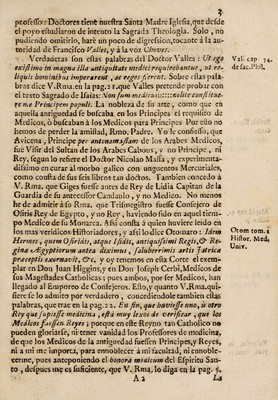 3
professor Doctores tient nuestra Santa Madre Iglesia, que desde
el poyo estudiaron de intento la Sagrada Theologia. Solo, no
pudiendo omitirlo, harè un poco de digression, tocante à la au
toridad de Francisco Valles, y à la voz
Verdaderas son estas palabras del Doctor Valles: Ut ego
existimo in magna illa antiquitate medici regulis habantur, ut re-
liquis hominibus imperarent, ac reges fierent. Sobre estas pala-
bras dice V. Rma. en la pag. 1. que Valles pretende probar con
el texto Sagrado de Isaias: Non sum medicus: nolite constitue-
re me Principem populi. La nobleza de su arte, como que en
aquella antiguedad se buscaba en los Principes el requisito de
Medicos, ò buscaban à los Medicos para Principes. Por esto no
hemos de perder la amistad, Rmo. Padre. Yo le confiesso, que
Avicena, Principe per antonomasiam de los Arabes Medicos,
fue Visir del Sultan de los Arabes Cabous, y no Principe, ni
Rey, segun lo refiere el Doctor Nicolao Massa, y experimenta-
dissimo en curar al morbo galico con unguentos Mercuriales,
como consta de sus seis libros tan doctos. Tambien concedo à
V. Rma. que Giges fuesse antes de Rey de Lidia Capitan de la
Guardia de su antecessor Candaulo, y no Medico. No menos
he de admitir à su Rma. que Trismegistro fuesse Consejero de
Osiris Rey de Egypto, y no Rey, haviendo sido en aquel tiem-
po Medico de su Monarca. Assi consta à quien huviere leido en
los mas veridicos Historiadores, y assi lo dice Otomaro: Idem
Hermes, quem Osiridis, atque Isidis, antiquissimi Regis, & Re-
gina Ægyptiorum antea diximus, saluberrimis artis Patrica
præceptis exornavit, &c. y oy tenemos en esta Corte el exem-
plar en Don Juan Higgins, y en Don Joseph Cerbi, Medicos de
sus Magestades Catholicas; pues ambos, por ser Medicos, han
llegado al Euroreo de Consejeros. Esto, y quanto V. Rma. qui-
siere se lo admito por verdadero, concediendole tambien estas
palabras, que trae en la pag. 22. En fin, que huviesse uno, ù otro
Rey que supiesse medicina, està muy lexos de verificar, que los
Medicos fuessen Reyes; porque en este Reyno tan Catholico no
pueden gloriarse, ni tener vanidad los Professores de medicina,
de que los Medicos de la antiguedad fuessen Principes, y Reyes,
ni à mi me importa, para ennoblecer à mi facultad, ni ennoble-
cerme, pues anteponiendo el honora medicum del Espiritu San-
to, despues me es suficiente, que V. Rma. lo diga en la pag. 5.
A 2
La
Vall. cap. 74.
de sac. Phil.
Otom tom. 1
Histor. Med.
Univ.